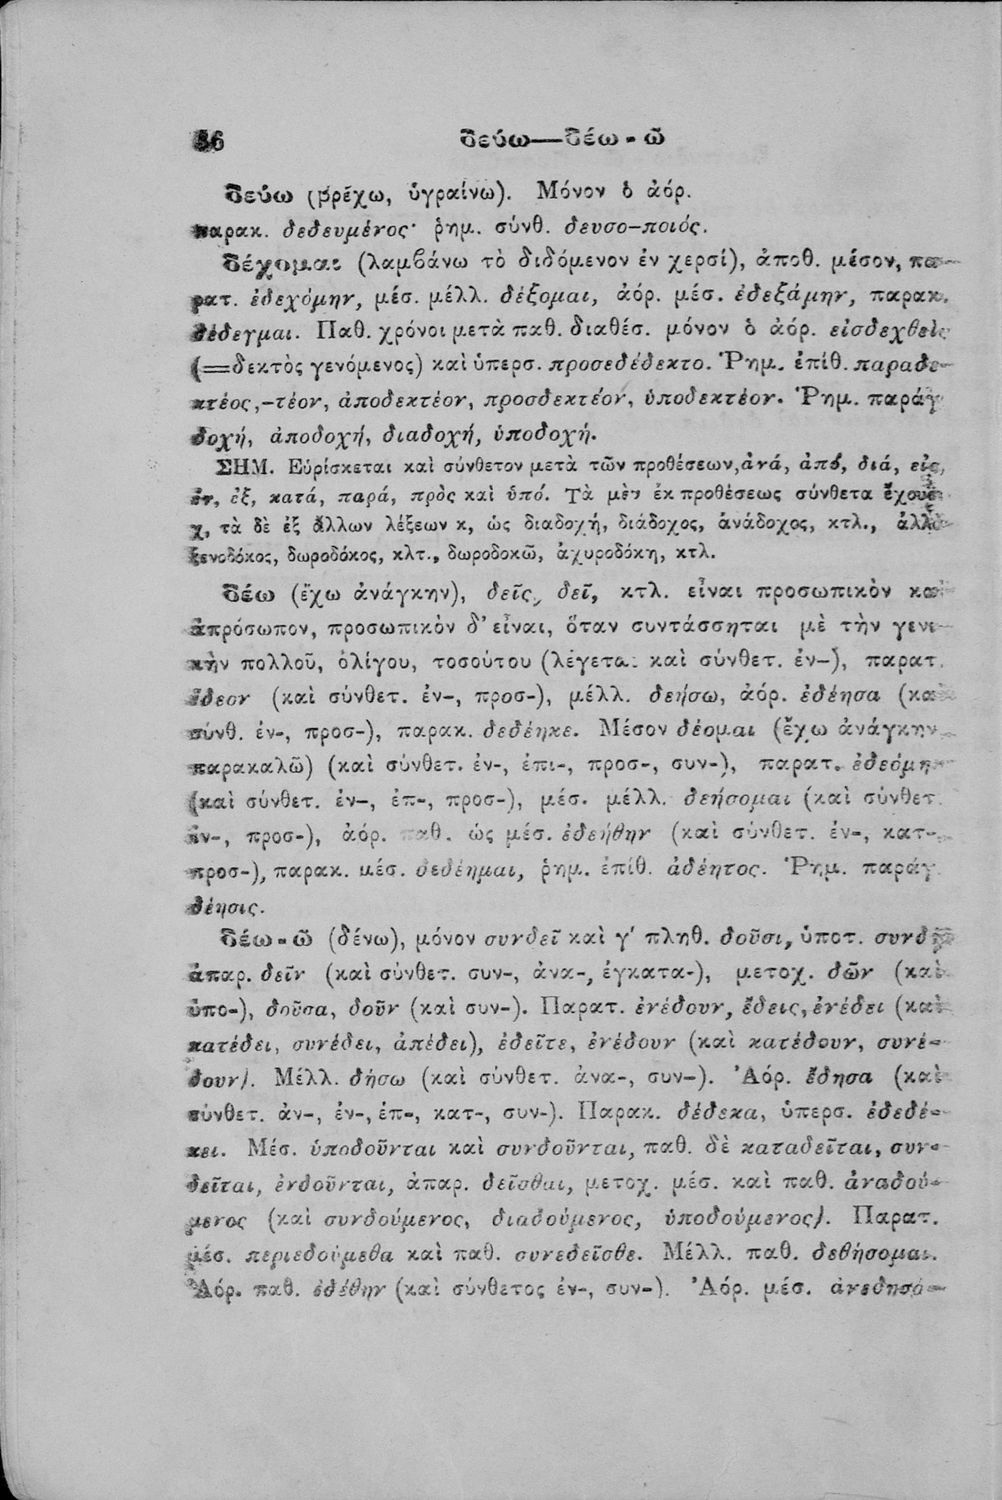 δεύω—δέω-ῶ
δεύω (βρέχω, ὑγραίνω). Μόνον ὁ ἀόρ.
παρακ. δεδευμένος· ῥημ. σύνθ. δευσο-ποιός.
δέχομαι (λαμβάνω τὸ διδόμενον ἐν χερσί), ἀποθ. μέσον, πα-
ρατ. ἐδεχόμην, μέσ. μέλλ. δέξομαι, ἀόρ. μέσ. ἐδεξάμην, παρακ.
δέδεγμαι. Παθ. χρόνοι μετὰ παθ. διαθέσ. μόνον ὁ ἀόρ. εἰσδεχθεὶς
(=δεκτὸς γενόμενος) καὶ ὑπερσ. προσεδέδεκτο. Ῥημ. ἐπίθ. παραδε-
κτέος,-τέον, ἀποδεκτέον, προσδεκτέον, ὑποδεκτέον. Ῥημ. παράγ
δοχή, ἀποδοχή, διαδοχή, ὑποδοχή.
ΣΗΜ. Εὑρίσκεται καὶ σύνθετον μετὰ τῶν προθέσεων, ἀνά, ἀπό, διά, εἰς,
ἐν, ἐξ, κατά, παρά, πρὸς καὶ ὑπό. Τὰ μὲν ἐκ προθέσεως σύνθετα ἔχουσι
χ, τὰ δὲ ἐξ ἄλλων λέξεων κ, ὡς διαδοχή, διάδοχος, ἀνάδοχος, κτλ., ἀλλὰ
ξενοδόκος, δωροδόκος, κλτ., δωροδοκῶ, ἀχυροδόκη, κτλ.
δέω (ἔχω ἀνάγκην), δεῖς, δεῖ, κτλ. εἶναι προσωπικὸν καὶ
ἀπρόσωπον, προσωπικὸν δ' εἶναι, ὅταν συντάσσηται μὲ τὴν γενι-
κὴν πολλοῦ, ὀλίγου, τοσούτου (λέγεται καὶ σύνθετ. ἐν-), παρατ.
ἔδεον (καὶ σύνθετ. ἐν-, προσ-), μέλλ. δεήσω, ἀόρ. ἐδέησα (καὶ
σύνθ. ἐν-, προσ-), παρακ. δεδέηκε. Μέσον δέομαι (ἔχω ἀνάγκην
παρακαλῶ) (καὶ σύνθετ. ἐν-, ἐπι-, προσ-, συν-), παρατ. ἐδεόμην
(καὶ σύνθετ. ἐν-, ἐπ-, προσ-), μέσ. μέλλ. δεήσομαι (καὶ σύνθετ.
ἐν-, προσ-), ἀόρ. παθ. ὡς μέσ. ἐδεήθην (καὶ σύνθετ. ἐν-, κατ-,
προσ-), παρακ. μέσ. δεδέημαι, ῥημ. ἐπίθ. ἀδέητος. Ῥημ. παράγ.
δέησις.
δέω-ῶ (δένω), μόνον συνδεῖ καὶ γ' πληθ. δοῦσι, ὑποτ. συνδῇ
ἀπαρ. δεῖν (καὶ σύνθετ. συν-, ἀνα-, ἐγκατα-), μετοχ. δῶν (καὶ
ὑπο-), δοῦσα, δοῦν (καὶ συν-). Παρατ. ἐνέδουν, ἔδεις, ἐνέδει (καὶ
κατέδει, συνέδει, ἀπέδει), ἐδεῖτε, ἐνέδουν (καὶ κατέδουν, συνέ-
δουν). Μέλλ. δήσω (καὶ σύνθετ. ἀνα-, συν-). Ἀόρ. ἔδησα (καὶ
σύνθετ. ἀν-, ἐν-, ἐπ-, κατ-, συν-). Παρακ. δέδεκα, ὑπερσ. ἐδεδέ-
κει. Μέσ. ὑποδοῦνται καὶ συνδοῦνται, παθ. δὲ καταδεῖται, συν-
δεῖται, ἐνδοῦνται, ἀπαρ. δεῖσθαι, μετοχ. μέσ. καὶ παθ. ἀναδού-
μενος (καὶ συνδούμενος, διαδούμενος, ὑποδούμενος). Παρατ.
μέσ. περιεδούμεθα καὶ παθ. συνεδεῖσθε. Μέλλ. παθ. δεθήσομαι.
Ἀόρ. παθ. ἐδέθην (καὶ σύνθετος ἐν-, συν-). Ἀόρ. μέσ. ἀνεδησά-